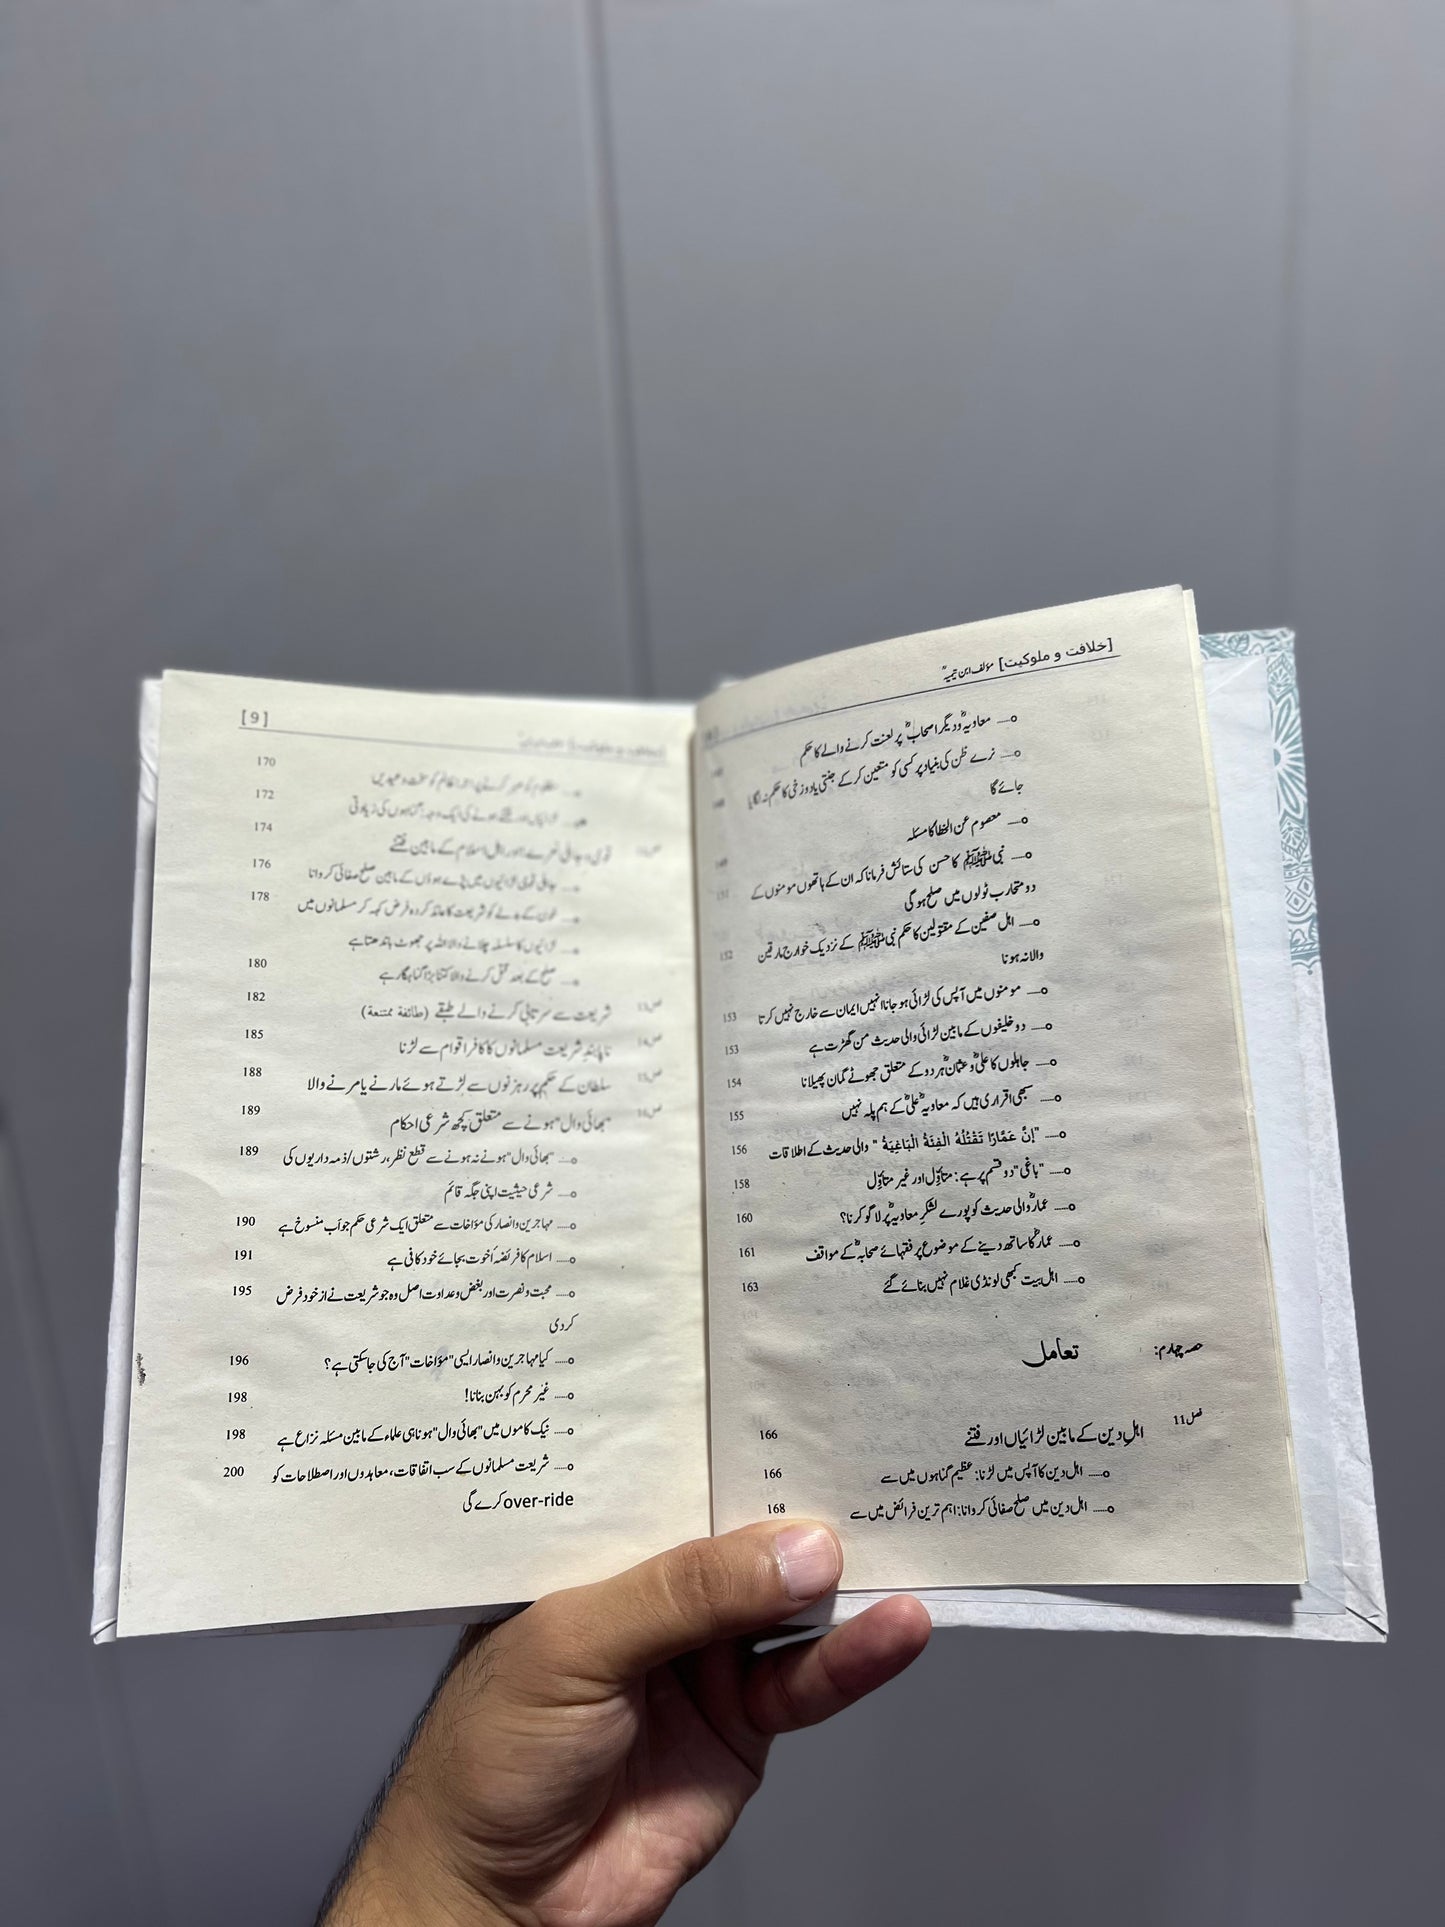 [خلافت و ملوکیت] مؤلف ابن تیمیہؒ
معاویہؓ ودیگر اصحابؓ پر لعنت کرنے والے کا حکم
148
نرے ظن کی بنیاد پر کسی کو متعین کرکے جنتی یا دوزخی کا حکم نہ لگایا
148
جائے گا
معصوم عن الخطا کا مسئلہ
149
نبی ﷺ کا حسن کی ستائش فرمانا کہ ان کے ہاتھوں مومنوں کے
151
دو متحارب ٹولوں میں صلح ہوگی
اہل صفین کے مقتولین کا حکم نبی ﷺ کے نزدیک خوارج مارقین
152
والا نہ ہونا
مومنوں میں آپس کی لڑائی ہو جانا انہیں ایمان سے خارج نہیں کرتا
153
دو خلیفوں کے مابین لڑائی والی حدیث من گھڑت ہے
153
جاہلوں کا علیؓ و عثمانؓ ہر دو کے متعلق جھوٹے گمان پھیلانا
154
سبھی اقراری ہیں کہ معاویہؓ علیؓ کے ہم پلہ نہیں
155
"إنَّ عَمَّارًا تَقْتُلُهُ الْفِئَةُ الْبَاغِيَةُ" والی حدیث کے اطلاقات
156
"باغی" دو قسم پر ہے: متأوِّل اور غیر متأوِّل
158
عمارؓ والی حدیث کو پورے لشکرِ معاویہؓ پر لاگو کرنا؟
160
عمارؓ کا ساتھ دینے کے موضوع پر فقہائے صحابہؓ کے مواقف
161
اہل بیت کبھی لونڈی غلام نہیں بنائے گئے
163
حصہ چہارم: تعامل
فصل 11 اہلِ دین کے مابین لڑائیاں اور فتنے
166
اہل دین کا آپس میں لڑنا: عظیم گناہوں میں سے
166
اہل دین میں صلح صفائی کروانا: اہم ترین فرائض میں سے
168
[9]
مظلوم کو صبر کرنے پر اجر، ظالم کو سخت وعیدیں
170
لڑائیاں اور فتنے ہونے کی ایک وجہ: گناہوں کی زیادتی
172
قومی، جاہلی نعرے اور اہل اسلام کے مابین فتنے
174
جاہلی قومی لڑائیوں میں پڑے ہوؤں کے مابین صلح صفائی کروانا
176
خون کے بدلے کو شریعت کا عائد کردہ فرض کہہ کر مسلمانوں میں
178
لڑائیوں کا سلسلہ چلانے والا اللہ پر جھوٹ باندھتا ہے
صلح کے بعد قتل کرنے والا کتنا بڑا گناہگار ہے
180
شریعت سے سرتابی کرنے والے طبقے (طائفة ممتنعة)
182
ناپابندِ شریعت مسلمانوں کا کافر اقوام سے لڑنا
185
سلطان کے حکم پر رہزنوں سے لڑتے ہوئے مارنے یا مرنے والا
188
"بھائی وال" ہونے سے متعلق کچھ شرعی احکام
189
"بھائی وال" ہونے نہ ہونے سے قطع نظر، رشتوں/ذمہ داریوں کی
189
شرعی حیثیت اپنی جگہ قائم
مہاجرین و انصار کی مؤاخات سے متعلق ایک شرعی حکم جو اَب منسوخ ہے
190
اسلام کا فریضۂ اُخوت بجائے خود کافی ہے
191
محبت و نصرت اور بغض و عداوت اصل وہ جو شریعت نے از خود فرض
195
کر دی
کیا مہاجرین و انصار ایسی "مؤاخات" آج کی جاسکتی ہے؟
196
غیر محرم کو بہن بنانا!
198
نیک کاموں میں "بھائی وال" ہونا ہی علماء کے مابین مسئلہ نزاع ہے
198
شریعت مسلمانوں کے سب اتفاقات، معاہدوں اور اصطلاحات کو
200
over-ride کرے گی